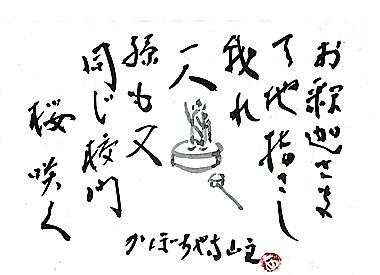 お釈迦さま
天地指さし
我れ
一人
孫も又
同じ校門
桜咲く
かぼちゃ寺山主